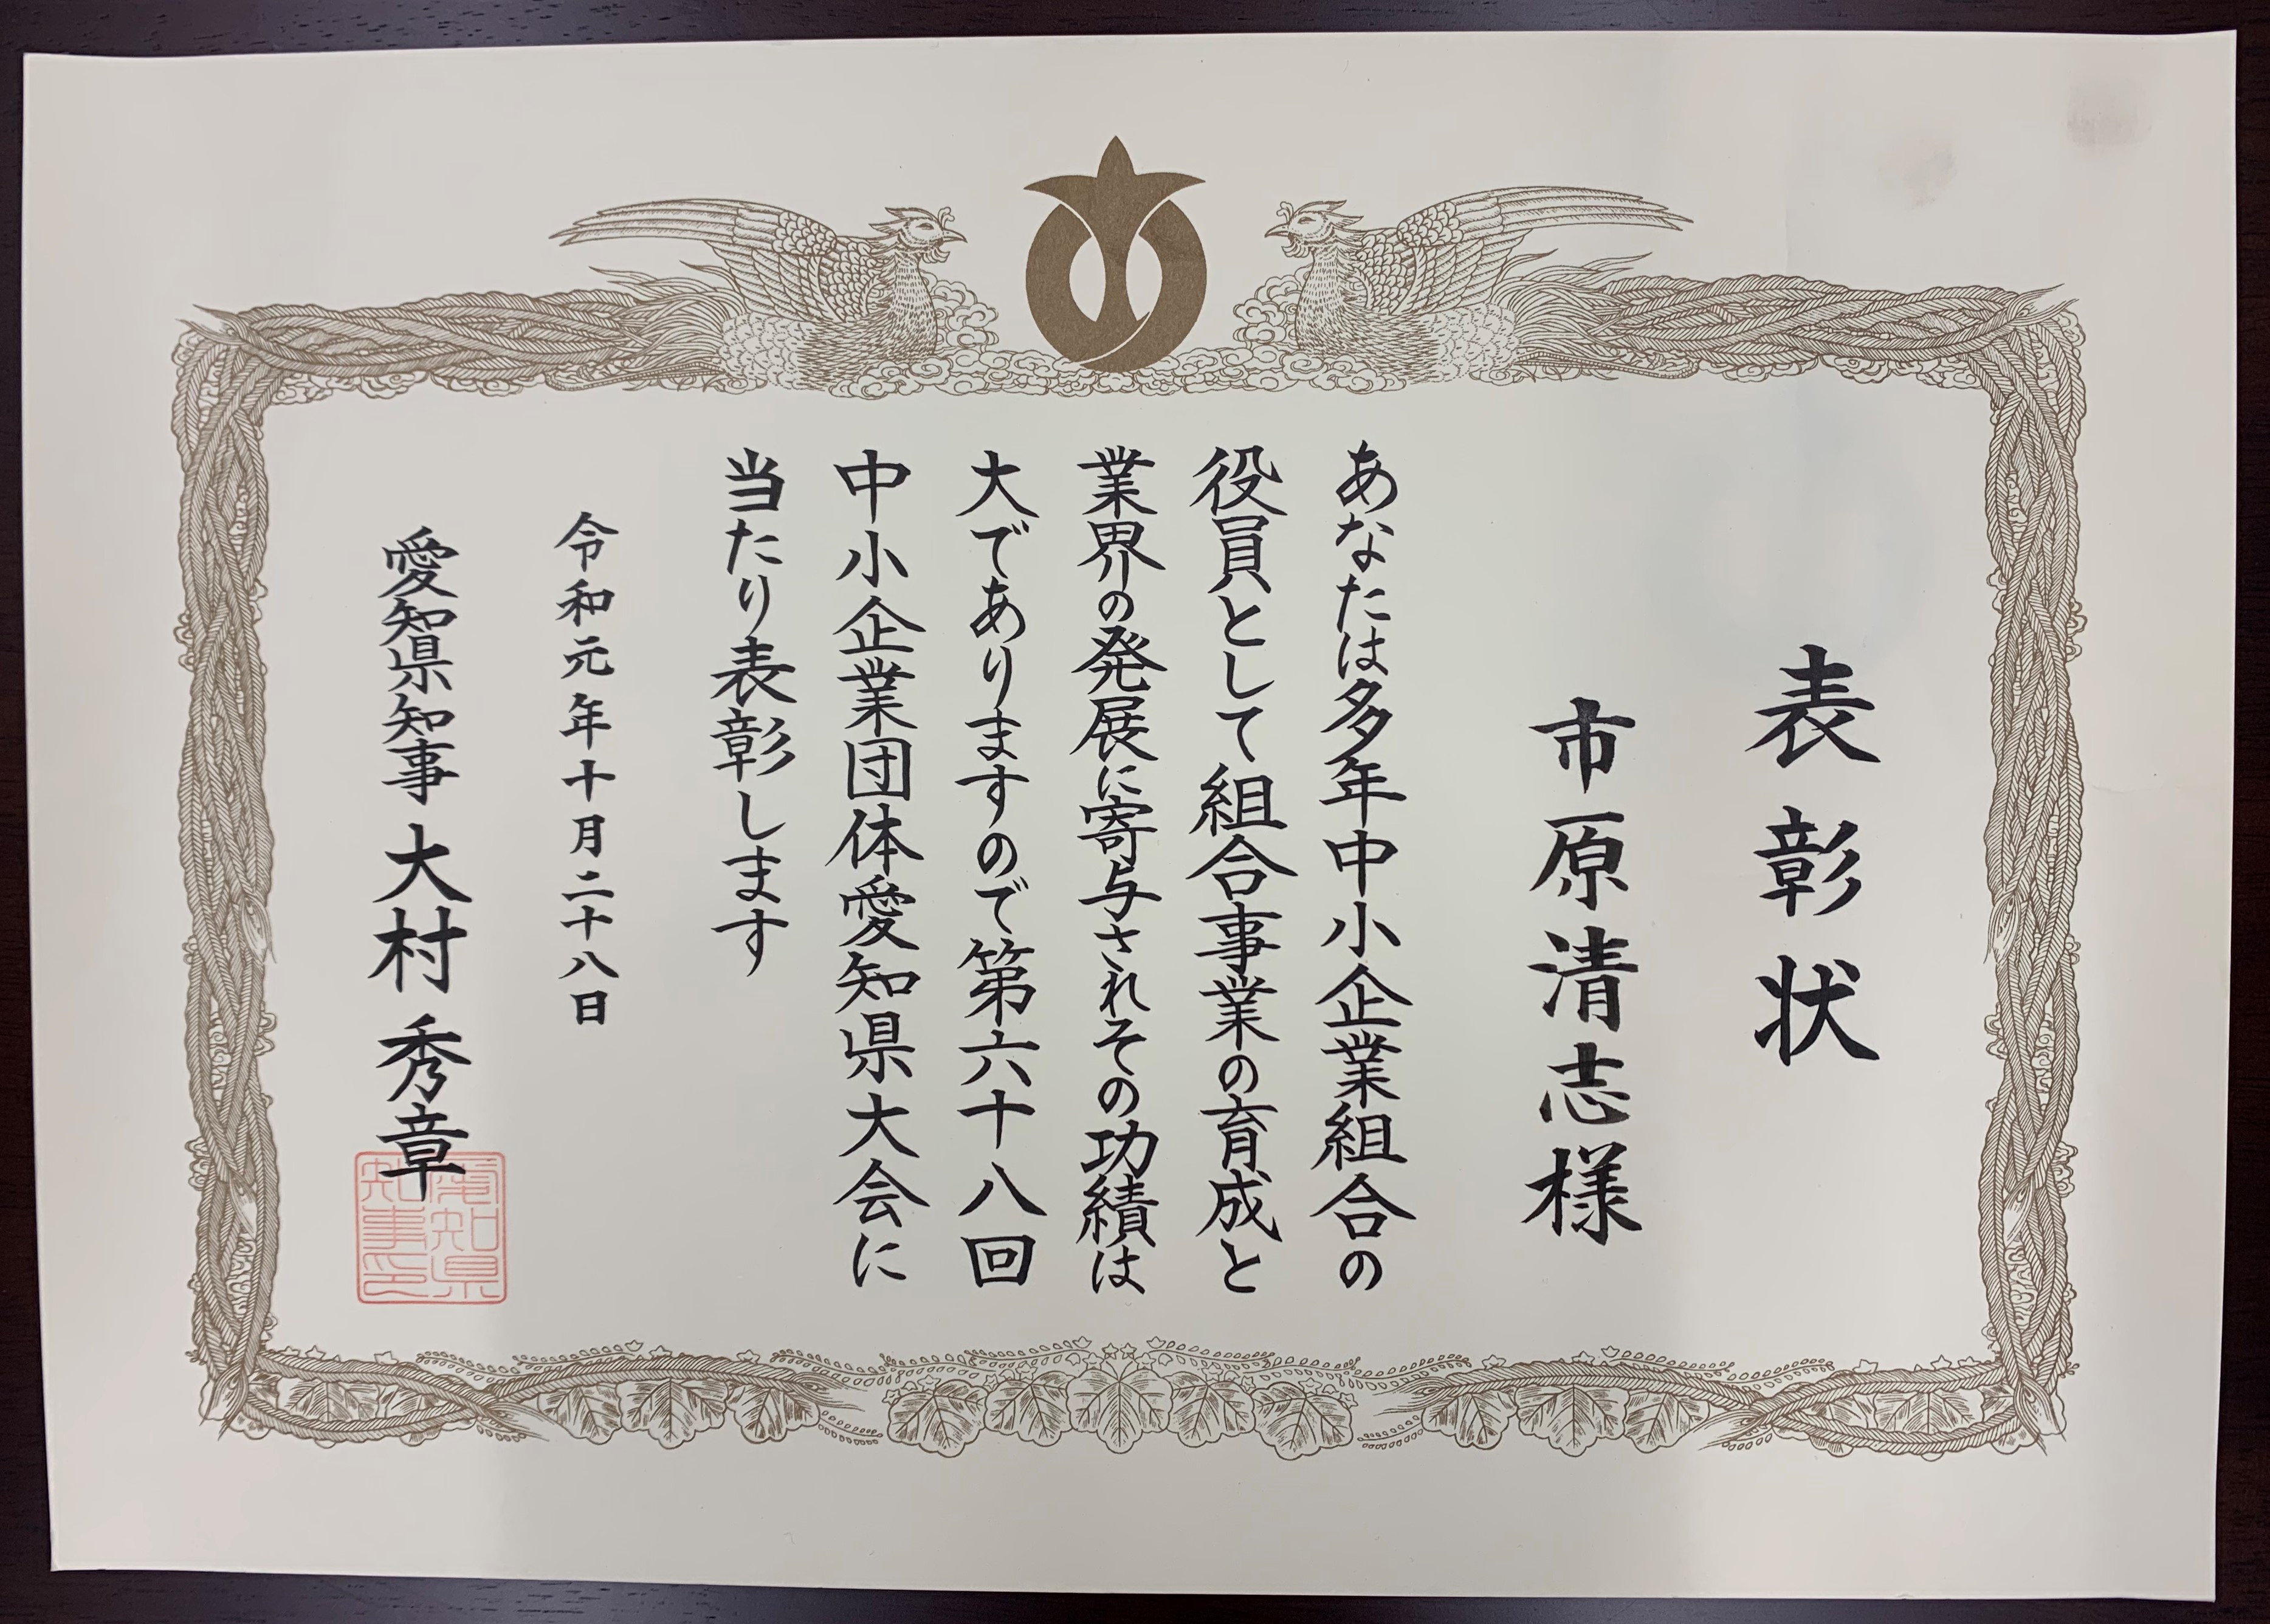 表彰状
市原清志様
あなたは多年中小企業組合の
役員として組合事業の育成と
業界の発展に寄与されその功績は
大でありますので第六十八回
中小企業団体愛知県大会に
当たり表彰します
令和元年十月二十八日
愛知県知事 大村秀章
愛知県
知事印